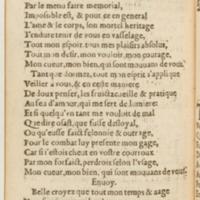 Par le menu faire memorial,
Impossible est, & pour ce en general
L'ame & le corps, son mortel heritage
J'endure tenir de vous en vasselage,
Tout mon espoir, tous mes plaisirs absolu,
Tout mon desir, mon vouloir, mon courage,
Mon cueur, mon bien, qui sont mouuans de vous.
Tant que dormez, tout mon esprit s'applique
Veiller a vous, & en ceste maniere
De doux penser, les fruicts cueille & pratique
Au sed d'amour, qui me sert de lumiere:
Et si quelqu'vn tant me vouloit de mal
Que dire osast, que fusse desloyal,
Ou qu'eusse faict felonnie & outrage,
Pour le combat luy presente mon gage,
Car s'il estoit cheut en vostre courroux
Par mon forfaict, perdrois selon l'vsage,
Mon cueur, mon bien, qui sont mouuans de vous.
Enuoy.
Belle croyez que tout mon temps & aage